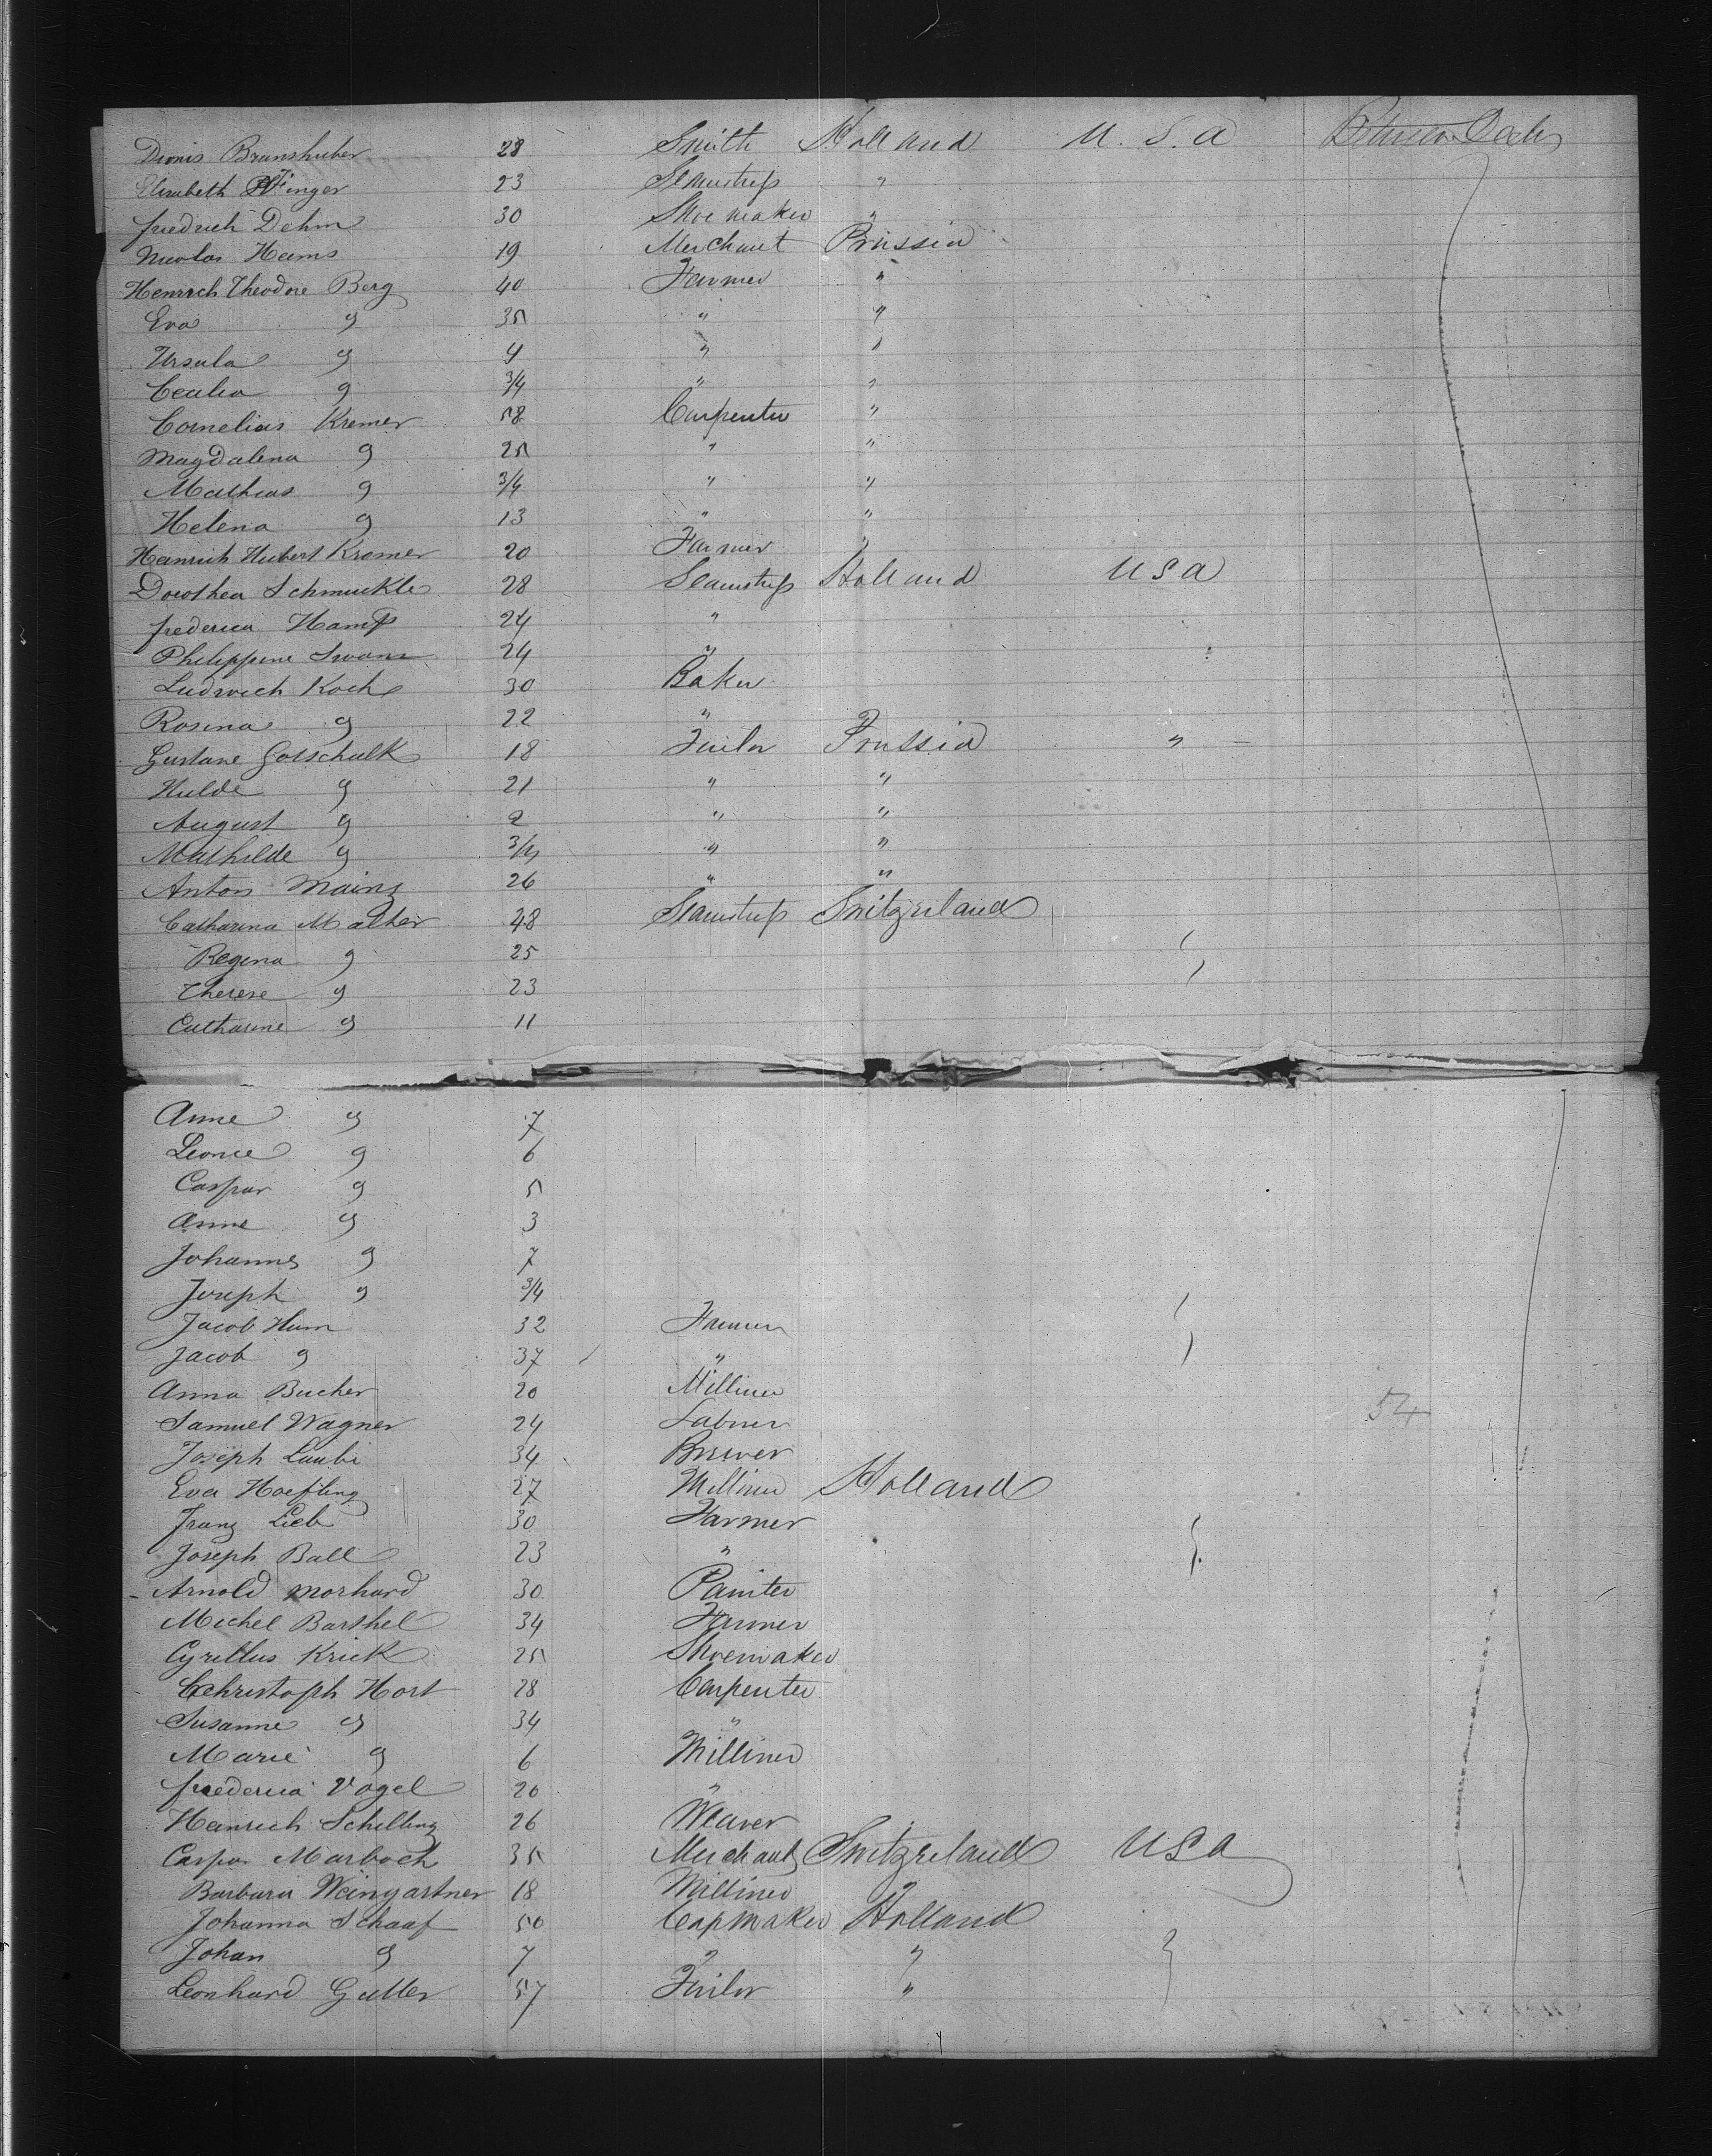 Dionis Brunshuber 28 Smith Holland U. S. A Between Decks
Elisabeth Pfinger 23 Seamstress "
friedrich Dehm 30 Shoemaker "
Nicolas Heims 19 Merchant Prussia
Heinrich Theodore Berg 40 Farmer "
Eva " 35 " "
Ursula " 4 " "
Cecilia " 3/4 " "
Cornelius Kremer 58 Carpenter "
Magdalena " 25 " "
Mathias " 3/4 " "
Helena " 13 " "
Heinrich Hubert Kremer 20 Farmer "
Dorothea Schmuckle 28 Seamstress Holland U S A
frederica Hamp 24 "
Philippine 24 "
Ludwich Koch 30 Baker
Rosina " 22 "
Gustave Gotschalk 18 Tailor Prussia "
Hulde " 21 " "
August " 2 " "
Mathilde " 3/4 " "
Anton Mainz 26 " "
Catharina Malher 48 Seamstress Switzerland
Regina " 25
Therese " 23
Catharine " 11
Anne " 7
Leonce " 6
Caspar " 5
Anne " 3
Johannes " 7
Joseph " 3/4
Jacob Hum 32 Farmer
Jacob " 37 "
Anna Bucher 20 Milliner
Samuel Wagner 24 Laborer 54
Joseph Laubi 34 Brewer
Eva Hoefling 27 Milliner Holland
Franz Lieb 30 Farmer
Joseph Ball 23 "
Arnold Morhard 30 Painter
Michel Barthel 34 Farmer
Cyrillus Krick 25 Shoemaker
Christoph Hort 28 Carpenter
Susanne " 34 "
Marie " 6 Milliner
frederica Vogel 20 "
Heinrich Schilling 26 Weaver
Caspar Marbach 35 Merchant Switzerland U S A
Barbara Weingartner 18 Milliner
Johanna Schaaf 50 Capmaker Holland
Johan " 7 " "
Leonhard Guller 57 Tailor "